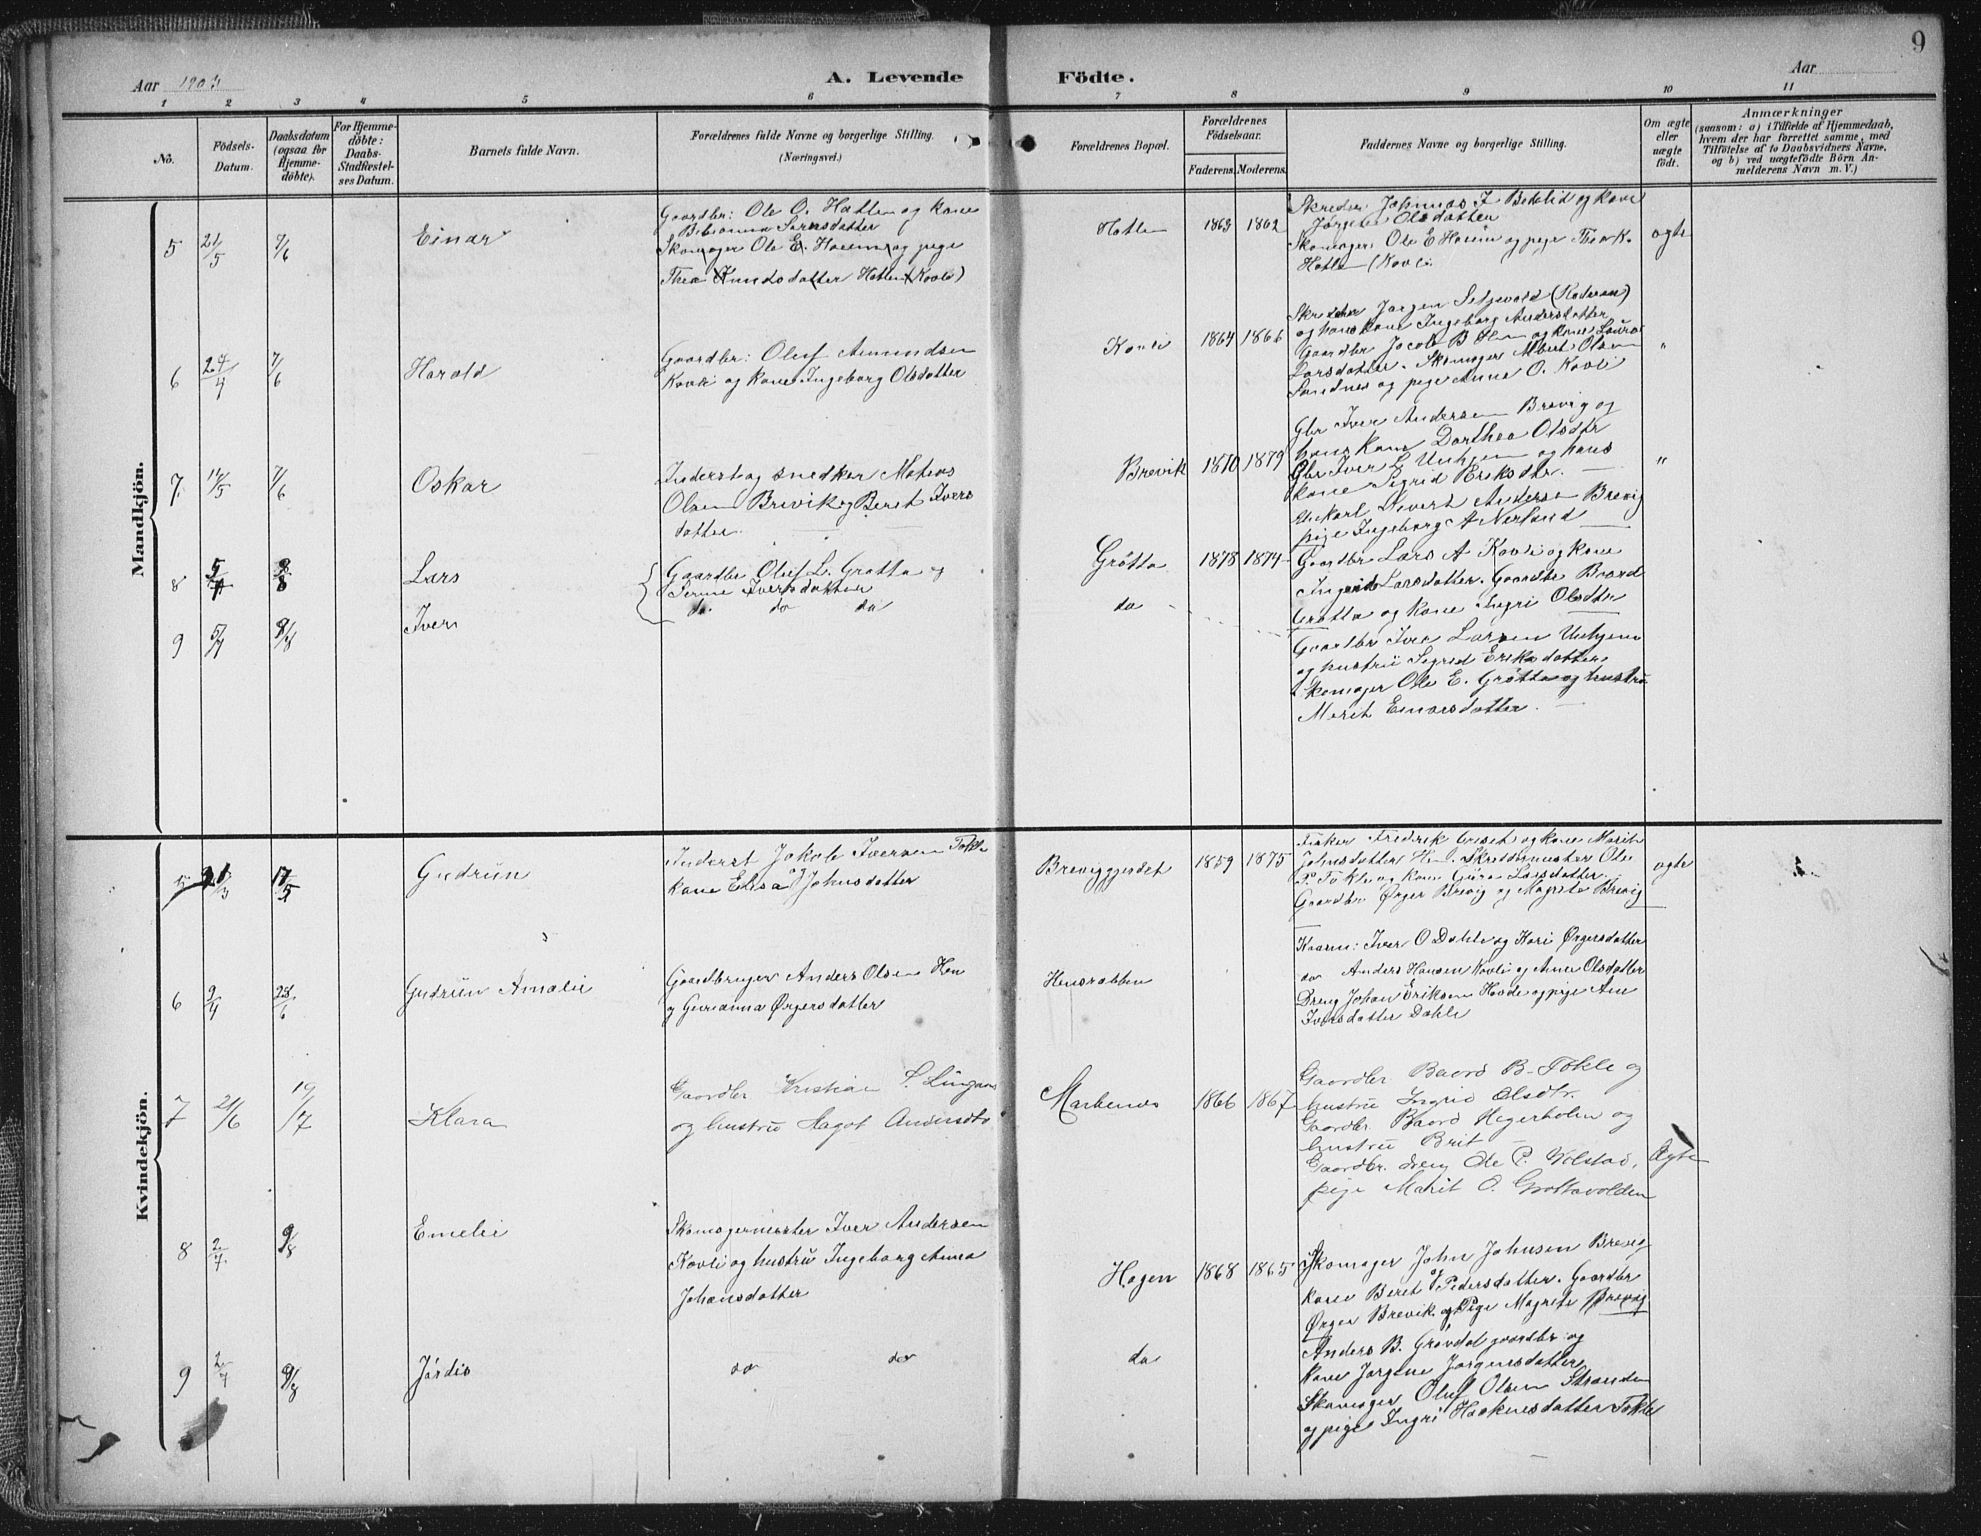 9
Aar 1903
A. Levende
Födte.
Aar
1 2 3 4 5 6 7 8 9 10 11
No.
Födsels-Datum.
Daabsdatum (ogsaa for Hjemme-döbte).
For Hjemme-döbte: Daabs-Stadfæstel-ses Datum.
Barnets fulde Navn.
Forældrenes fulde Navne og borgerlige Stilling.
(Næringsvei.)
Forældrenes Bopæl.
Forældrenes Födselsaar.
Faderens. Moderens.
Faddernes Navne og borgerlige Stilling.
Om ægte eller uægte födt.
Anmærkninger
(saasom: a) i Tilfælde af Hjemmedaab, hvem der har forrettet samme, med Tilföielse af to Daabsvidners Navne, og b) ved uægtefödte Börn An-melderens Navn m. V.)
Mandkjön.
5 21/5 7/6 Einar
Gaardbr: Ole O. Hatlen og kone
Skomager Ole E. Horem og pige
Thea Knudsdatter Hatlen (Kovli)
Hatlen 1863 1862
Skredder Johannes J Boklid og kone
Jørgine Olsdatter
Skomager Ole E Horem og pige Thea K.
Hatlen (Kovli
ægte
6 24/4 7/6 Harald
Gaardbr: Oluf Amundsen
Kovli og kone Ingeborg Olsdatter
Kovli 1864 1866
Skredder Jørgen Seljevold
og hans kone Ingeborg Andersdatter
Gaardbr Jacob B Olsen og kone Laura
Larsdatter. Skomager Albert Olsen
Sandnes og pige Anna O. Kovli
"
7 14/5 7/6 Oskar
Inderst og snedker Mateus
Olsen Brevik og Beret Ivers
datter.
Brevik 1870 1879
Gbr Iver Andersen Brevig og
hans kone Dorthea Olsdtr
Gbr Iver L Unhjem og hans
kone Sigrid Eriksdtr.
Ungkarl Sivert Andersen Brevig
pige Ingeborg A Nerland
"
8 5/7 9/8 Lars
Gaardbr Oluf L. Grøtta og
Serine Iversdatter
Grøtta 1878 1874
Gaardbr Lars A Kovli og kone
Ingerid Larsdatter. Gaardbr Baard
Grøtta og kone Ingri Olsdtr
9 5/7 9/8 Iver
do do do
do
Gaardbr Iver Larsen Unhjem
og hustru Sigrid Eriksdatter
Skomager Ole E. Grøtta og hustru
Marit Einarsdatter.
Kvindekjön.
5 21/3 17/5 Gudrun
Inderst Jakob Iversen Tokle
kone Elisa Johnsdatter
Breviggjerdet 1859 1875
Fisker Fredrik Griset og kone Marit
Johnsdatter Hen. Skreddermester Ole
P. Tokle og kone Gura Larsdatter.
Gaardbr Ørger Brevig og Magrete Brevig
ægte
6 9/4 28/6 Gudrun Amalie
Gaardbruger Anders Olsen Hen
og Gurianna Ørgersdatter
Hensrabben
Kaarm: Iver O Dahle og Kari Ørgersdatter
do Anders Hansen Kovli og Anne Olsdatter
Dreng Johan Eriksen Hovde og pige Ane
Iversdatter Dahle
7 21/6 19/7 Klara
Gaardbr Kristian P. Lingaas
og hustru Magot Andersdtr
Marhenes 1866 1867
Gaardbr Baard B. Tokle og
hustru Ingrid Olsdtr.
Gaardbr. Baard Hegerholm og
hustru Brit
Gaardbr. dreng Ole P. Volstad,
pige Marit O. Grøttavolden
Ægte
8 2/7 9/8 Emelie
Skomagermester Iver Andersen
Kovli og hustru Ingeborg Anna
Johansdatter
Hagen 1868 1865
Skomager John Johnsen Brevig
kone Beret Pedersdatter. Gaardbr
Ørger Brevik og Pige Magrete Brevig
9 2/7 9/8 Jørdis
do do
do
Anders B. Grøvdal gaardbr og
kone Jørgine Jørgensdatter
Skomager Oluf Olsen Stranden
og pige Ingri Haaknesdatter Tokle